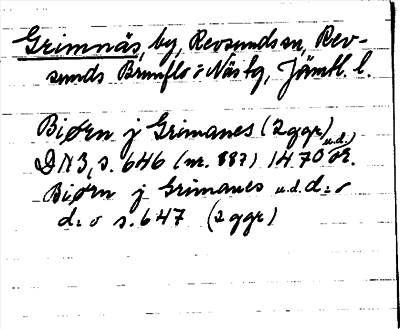 Grimnäs, by, Revsunds sn, Rev-
sunds Brunflo o Näs tg, Jämtl. l.
Biørn j Grimanes (2 ggr)
DN 3, s. 646 (nr. 887) 1470 or. u.d.)
Biørn j Grimanes u.d. d:o
d:o s. 647 (2 ggr)